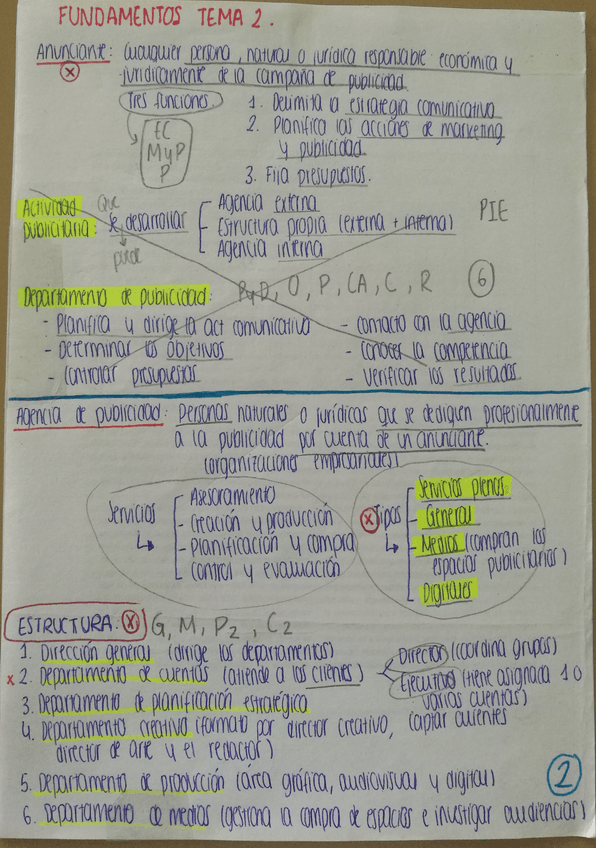 FUNDAMENTOS TEMA 2.
Anunciante: Cualquier persona, natural o jurídica responsable económica y
jurídicamente de la campaña de publicidad.
Tres funciones
1. Delimita la estrategia comunicativa
2. Planifica las acciones de marketing
y publicidad.
3. Fija presupuestos.
EC
MyP
P
Actividad publicitaria: Que se desarrollar
puede
Agencia externa
Estructura propia (externa + interna)
Agencia interna
PIE
Departamento de publicidad: PyD, O, P, CA, C, R 6
- Planifica y dirige la act comunicativa
- Determinar los objetivos
- Controlar presupuestos
- contacto con la agencia
- Conocer la competencia
- Verificar los resultados.
Agencia de publicidad: Personas naturales o jurídicas que se dediquen profesionalmente
a la publicidad por cuenta de un anunciante.
(organizaciones empresariales)
Servicios
Asesoramiento
- Creación y producción
- Planificación y compra
Control y evaluación
Tipos
Servicios plenos.
- General
- Medios (compran los
espacios publicitarios)
Digitales
ESTRUCTURA: G, M, P2, C2
1. Dirección general (dirige los departamentos)
x 2. Departamento de cuentas (atiende a los clientes)
Director (coordina grupos)
Ejecutivo (tiene asignada 1 o
varias cuentas)
captar clientes
3. Departamento de planificación estratégica
4. Departamento creativo (formato por director creativo,
director de arte y el redactor)
5. Departamento de producción (área gráfica, audiovisual y digital)
6. Departamento de medios (gestiona la compra de espacios e investigar audiencias)
2